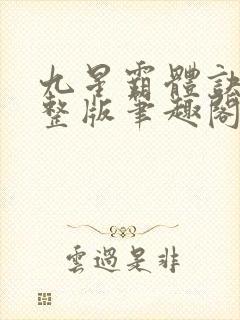 九星霸體訣
整版筆趣閣
雲過是非